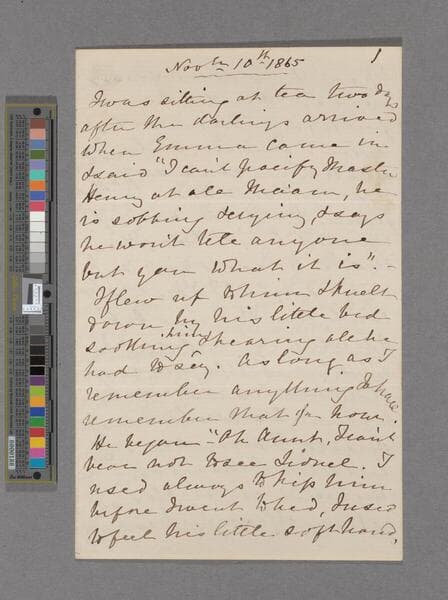 1
Novbr 10th 1865
I was sitting at tea two days
after the darlings arrived
when Emma came in
& said "I can't pacify Master
Henry at all Ma'am, he
is sobbing & crying, & says
he won't tell anyone
but you what it is".-
I flew up to him & knelt
down by his little bed
soothing him & hearing all he
had to say. As long as I
remember anything I shall
remember that 1/2 hour.
He began - "Oh Aunt, I can't
bear not to see Lionel. I
used always to kiss him
before I went to bed, I used
to feel his little soft hand,